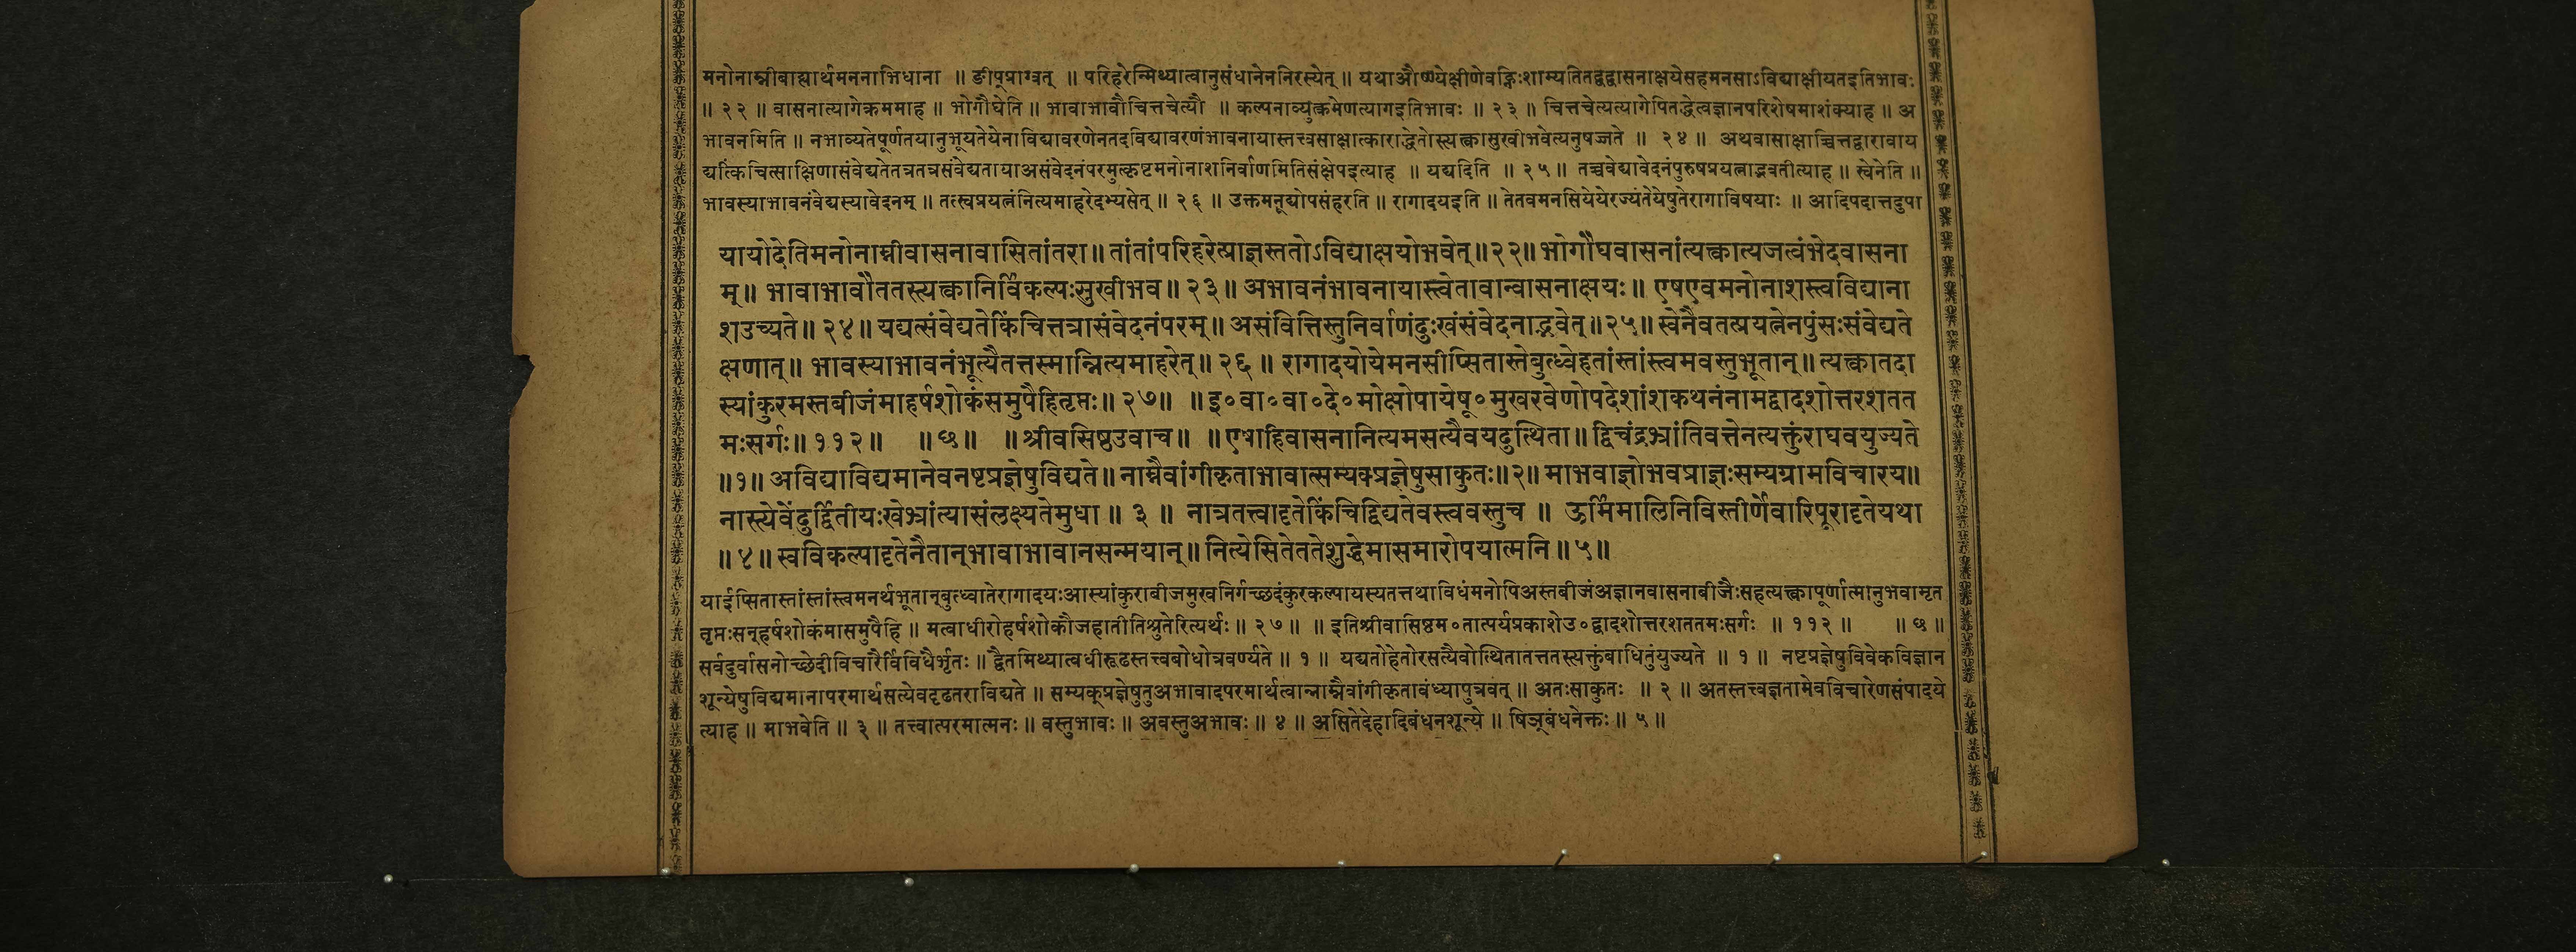 मनोनाम्नीबाह्यार्थमननाभिधाना ॥ ङीप्प्राग्वत् ॥ परिहरेन्मिथ्यात्वानुसंधानेननिरस्येत् ॥ यथाऔष्ण्येक्षीणेवह्निःशाम्यतितद्वद्वासनाक्षयेसहमनसाऽविद्याक्षीयतइतिभावः
॥ २२ ॥ वासनात्यागेक्रममाह ॥ भोगौघेति ॥ भावाभावौचित्तचेत्यौ ॥ कल्पनाव्युत्क्रमेणत्यागइतिभावः ॥ २३ ॥ चित्तचेत्यत्यागेपितद्धेत्वज्ञानपरिशेषमाशंक्याह ॥ अ
भावनमिति ॥ नभाव्यतेपूर्णतयानुभूयतेयेनाविद्यावरणेनतदविद्यावरणंभावनायास्तत्त्वसाक्षात्काराद्धेतोस्त्यक्त्वासुखीभवेत्यनुषज्जते ॥ २४ ॥ अथवासाक्षाच्चित्तद्वारावाय
द्यत्किंचित्साक्षिणासंवेद्यतेतत्रतत्रसंवेद्यतायाअसंवेदनंपरमुत्कृष्टमनोनाशनिर्वाणमितिसंक्षेपइत्याह ॥ यद्यदिति ॥ २५ ॥ तच्चवेद्यावेदनंपुरुषप्रयत्नाद्भवतीत्याह ॥ स्वेनेति ॥
भावस्याभावनंवेद्यस्यावेदनम् ॥ तत्स्वप्रयत्नंनित्यमाहरेदभ्यसेत् ॥ २६ ॥ उक्तमनूद्योपसंहरति ॥ रागादयइति ॥ तेतवमनसियेयेरज्यंतेयेषुतेरागाविषयाः ॥ आदिपदात्तदुपा
यायोदेतिमनोनाम्नीवासनावासितांतरा ॥ तांतांपरिहरेत्प्राज्ञस्ततोऽविद्याक्षयोभवेत् ॥ २२ ॥ भोगौघवासनांत्यक्त्वात्यजत्वंभेदवासना
म् ॥ भावाभावौततस्त्यक्त्वानिर्विकल्पःसुखीभव ॥ २३ ॥ अभावनंभावनायास्त्वेतावान्वासनाक्षयः ॥ एषएवमनोनाशस्त्वविद्याना
शउच्यते ॥ २४ ॥ यद्यत्संवेद्यतेकिंचित्तत्रासंवेदनंपरम् ॥ असंवित्तिस्तुनिर्वाणंदुःखंसंवेदनाद्भवेत् ॥ २५ ॥ स्वेनैवतत्प्रयत्नेनपुंसःसंवेद्यते
क्षणात् ॥ भावस्याभावनंभूत्यैतत्तस्मान्नित्यमाहरेत् ॥ २६ ॥ रागादयोयेमनसीप्सितास्तेबुत्ध्वेहतांस्तांस्त्वमवस्तुभूतान् ॥ त्यक्त्वातदा
स्यांकुरमस्तबीजंमाहर्षशोकंसमुपैहितृप्तः ॥ २७ ॥ ॥ इ॰वा॰वा॰दे॰मोक्षोपायेषू॰मुखरवेणोपदेशांशकथनंनामद्वादशोत्तरशतत
मःसर्गः ॥ ११२ ॥ ॥ छ ॥ ॥ श्रीवसिष्ठउवाच ॥ ॥ एषाहिवासनानित्यमसत्यैवयदुत्थिता ॥ द्विचंद्रभ्रांतिवत्तेनत्यक्तुंराघवयुज्यते
॥ १ ॥ अविद्याविद्यमानेवनष्टप्रज्ञेषुविद्यते ॥ नाम्नैवांगीकृताभावात्सम्यक्प्रज्ञेषुसाकुतः ॥ २ ॥ माभवाज्ञोभवप्राज्ञःसम्यग्रामविचारय ॥
नास्त्येवेंदुर्द्वितीयःखेभ्रांत्यासंलक्ष्यतेमुधा ॥ ३ ॥ नात्रतत्त्वादृतेकिंचिद्विद्यतेवस्त्ववस्तुच ॥ ऊर्मिमालिनिविस्तीर्णेवारिपूरादृतेयथा
॥ ४ ॥ स्वविकल्पादृतेनैतान्भावाभावानसन्मयान् ॥ नित्येसितेततेशुद्धेमासमारोपयात्मनि ॥ ५ ॥
याईप्सितास्तांस्तांस्त्वमनर्थभूतान्बुत्ध्वातेरागादयःआस्यांकुराबीजमुखनिर्गच्छदंकुरकल्पायस्यतत्तथाविधंमनोपिअस्तबीजंअज्ञानवासनाबीजैःसहत्यक्त्वापूर्णात्मानुभवामृत
तृप्तःसन्हर्षशोकंमासमुपैहि ॥ मत्वाधीरोहर्षशोकौजहातीतिश्रुतेरित्यर्थः ॥ २७ ॥ ॥ इतिश्रीवासिष्ठम॰तात्पर्यप्रकाशेउ॰द्वादशोत्तरशततमःसर्गः ॥ ११२ ॥ ॥ छ ॥
सर्वदुर्वासनोच्छेदीविचारैर्विविधैर्भृतः ॥ द्वैतमिथ्यात्वधीरूढस्तत्त्वबोधोत्रवर्ण्यते ॥ १ ॥ यद्यतोहेतोरसत्यैवोत्थितातत्ततस्त्यक्तुंबाधितुंयुज्यते ॥ १ ॥ नष्टप्रज्ञेषुविवेकविज्ञान
शून्येषुविद्यमानापरमार्थसत्येवदृढतराविद्यते ॥ सम्यक्प्रज्ञेषुतुअभावादपरमार्थत्वान्नाम्नैवांगीकृतावंध्यापुत्रवत् ॥ अतःसाकुतः ॥ २ ॥ अतस्तत्त्वज्ञतामेवविचारेणसंपादये
त्याह ॥ माभवेति ॥ ३ ॥ तत्त्वात्परमात्मनः ॥ वस्तुभावः ॥ अवस्तुअभावः ॥ ४ ॥ असितेदेहादिबंधनशून्ये ॥ षिञ्बंधनेक्तः ॥ ५ ॥